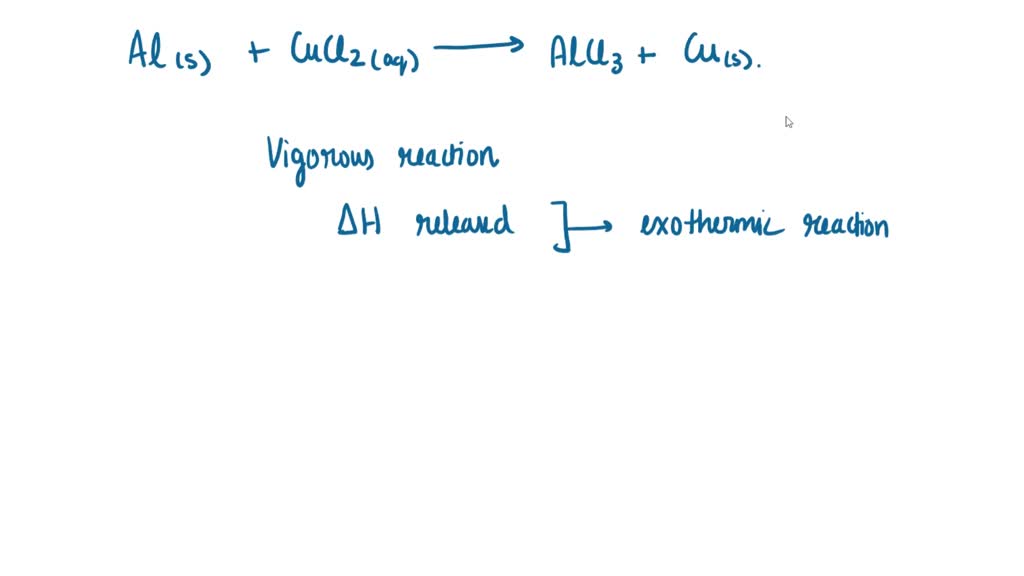 Al(s) + CuCl2(aq) ⟶ AlCl3 + Cu(s).
Vigorous reaction
ΔH released ]→ exothermic reaction